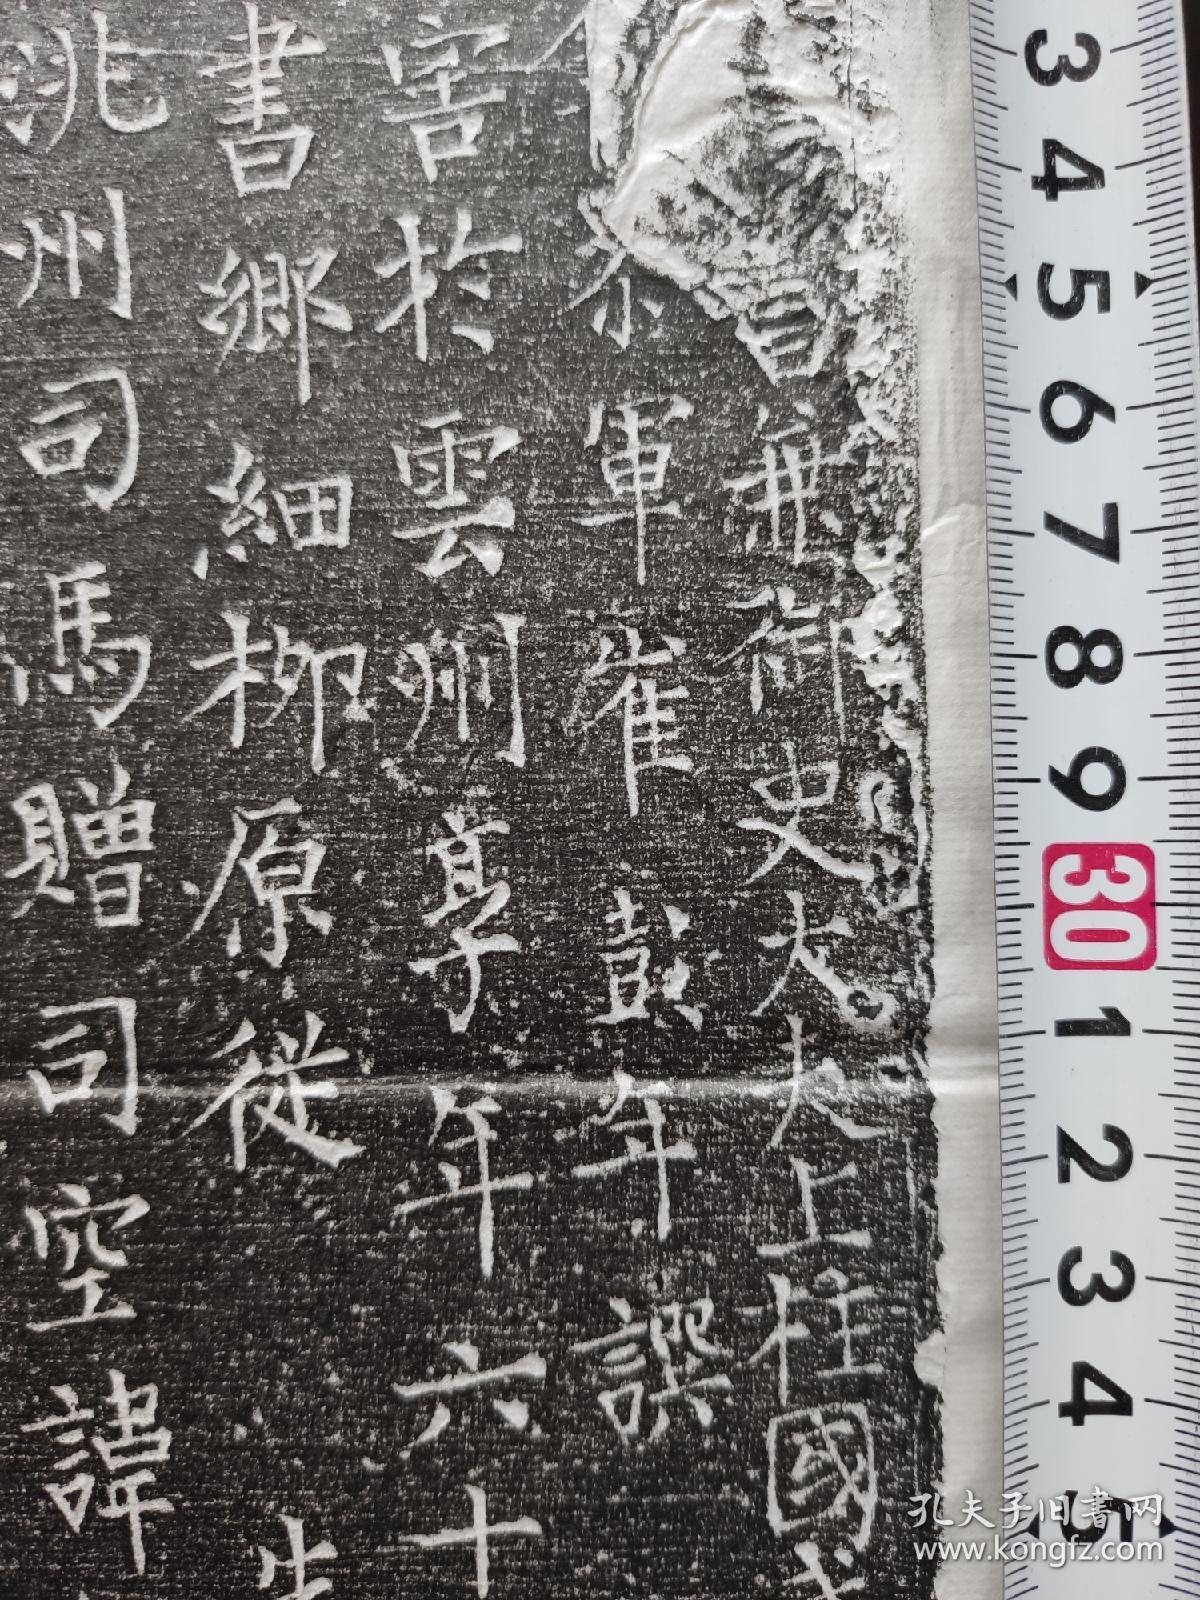 兼御史大夫上柱國
參軍崔彭年譔
害於雲州享年六十
書鄉細柳原從
洮州司馬贈司空諱
3
4
5
6
7
8
9
30
1
2
3
4
5
孔夫子旧书网
www.kongfz.com